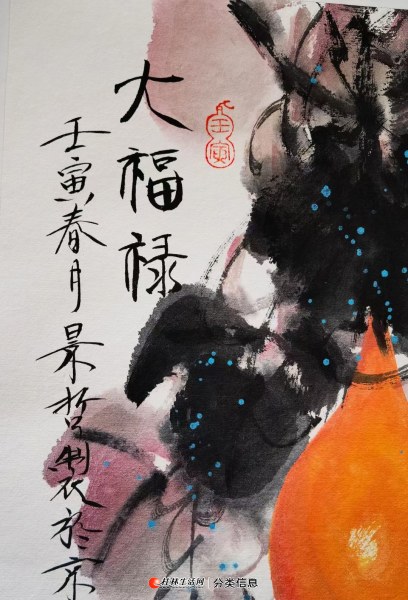 大福禄
壬寅春月景哲製於京
壬寅
桂林生活网 分类信息